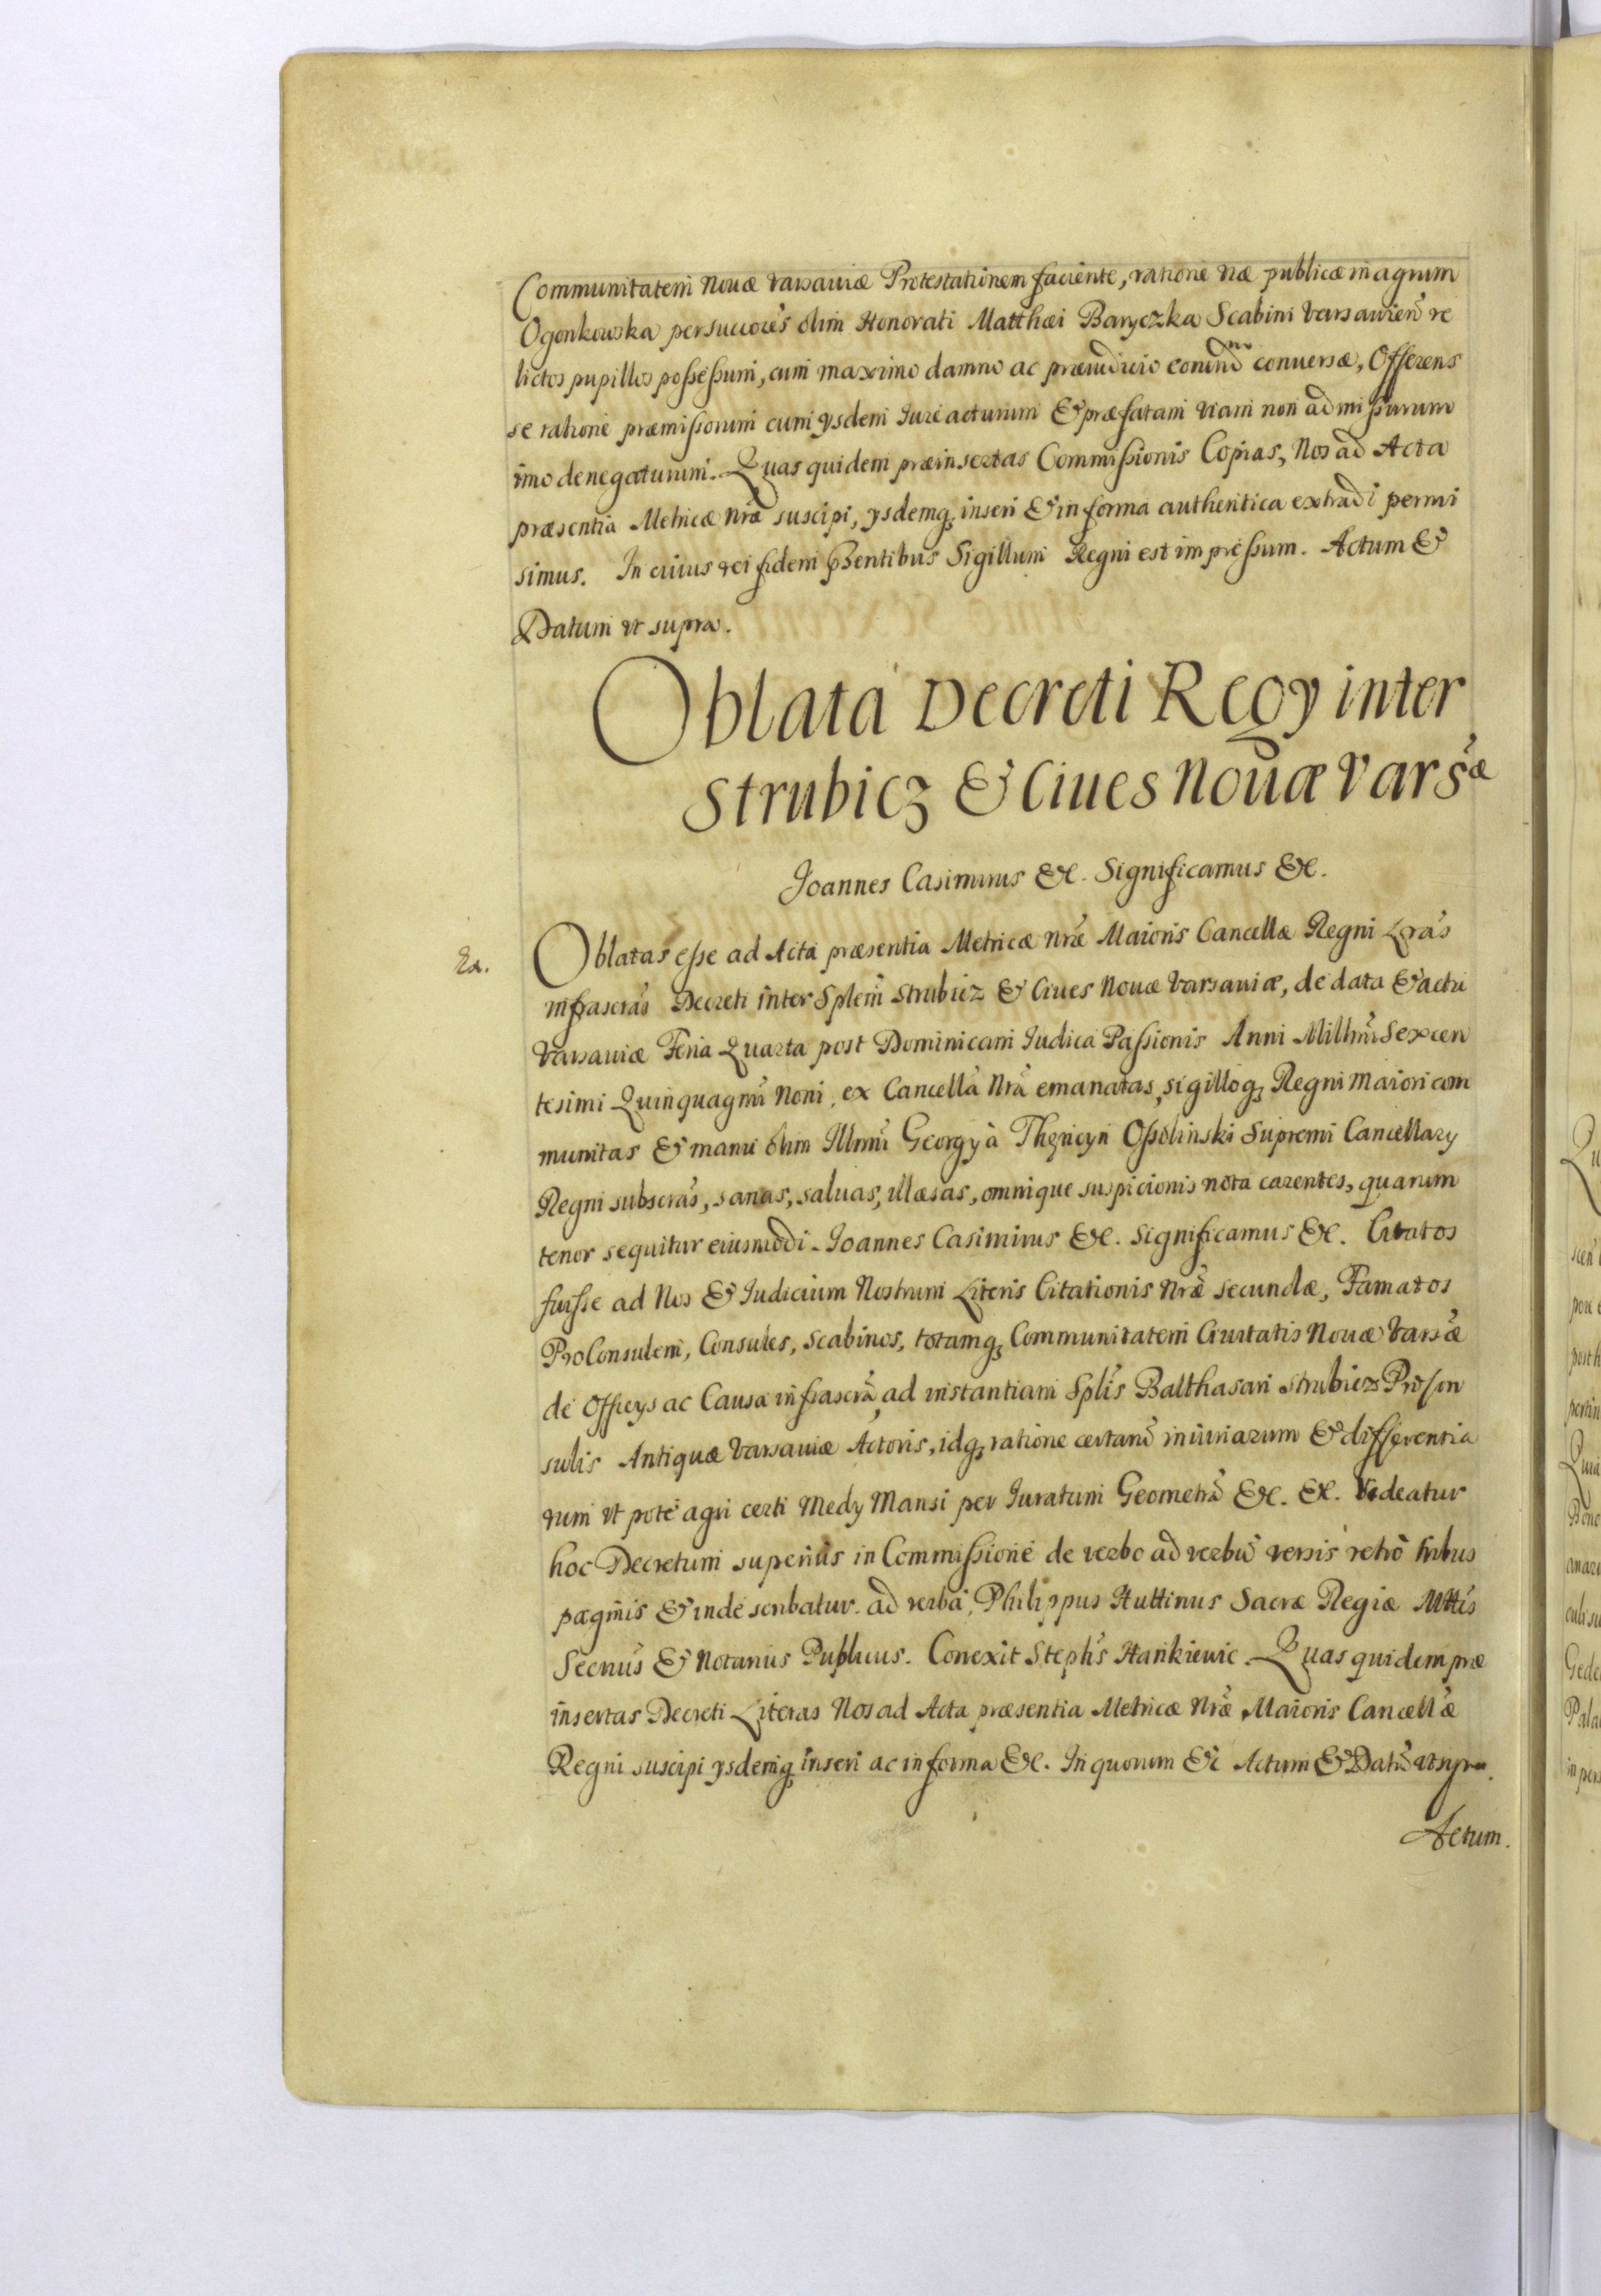 Communitatem Nouæ Varsauiæ Protestationem faciente, ratione viæ publicæ in agrum
Ogonkowska per succores olim Honorati Matthæi Baryczka Scabini Varsauien̄ re
lictos pupillos possessum, cum maximo damno ac præiudicio eorund conuersæ, Offerens
se ratione præmissorum cum ysdem Iure acturum & præfatam viam non admissurum
imo denegaturum. Quas quidem præinsertas Commissionis Copias, Nos ad Acta
præsentia Metricæ Nræ suscipi, ysdemq, inseri & in forma authentica extradi permi
simus. In cuius rei fidem pñtibus Sigillum Regni est impressum. Actum &
Datum vt supra.
Oblata Decreti Regy inter
Strubicz & Ciues Nouæ Varsæ
Joannes Casimirus &c. Significamus &c.
Ex.
Oblatas esse ad Acta præsentia Metricæ Nræ Maioris Cancellæ Regni Lras
infrascras Decreti inter Splem Strubicz & Ciues Nouæ Varsauiæ, de data & actu
Varsauiæ Feria Quarta post Dominicam Iudica Passionis Anni Millmi Sexcen
tesimi Quinquagmi Noni, ex Cancella Nra emanatas, sigilloq, Regni Maiori com
munitas & manu olim Illmi Georgy à Thęnczyn Ossolinski Supremi Cancellary
Regni subscras, sanas, saluas, illæsas, omnique suspicionis nota carentes, quarum
tenor sequitur eiusmodi. Joannes Casimirus &c. Significamus &c. Citatos
fuisse ad Nos & Iudicium Nostrum Literis Citationis Nræ secundæ, Famatos
ProConsulem, Consules, Scabinos, totamq, Communitatem Ciuitatis Nouæ Varsæ
de Officys ac Causa infrascra, ad instantiam Splis Balthasari Strubicz ProCon
sulis Antiquæ Varsauiæ Actoris, idq, ratione certarū iniuriarum & differentia
rum vt pote agri certi Medy Mansi per Iuratum Geometrā &c. &c. Videatur
hoc Decretum superius in Commissione de verbo ad verbū versis retro tribus
paginis & inde scribatur ad verba, Philippus Huttinus Sacræ Regiæ Mttis
Secrius & Notarius Publicus. Correxit Stephs Hankiewic. Quas quidem præ
insertas Decreti Literas Nos ad Acta præsentia Metricæ Nræ Maioris Cancellæ
Regni suscipi ysdemq, inseri ac in forma &c. In quorum &c Actum & Datū vt supra.
Actum.